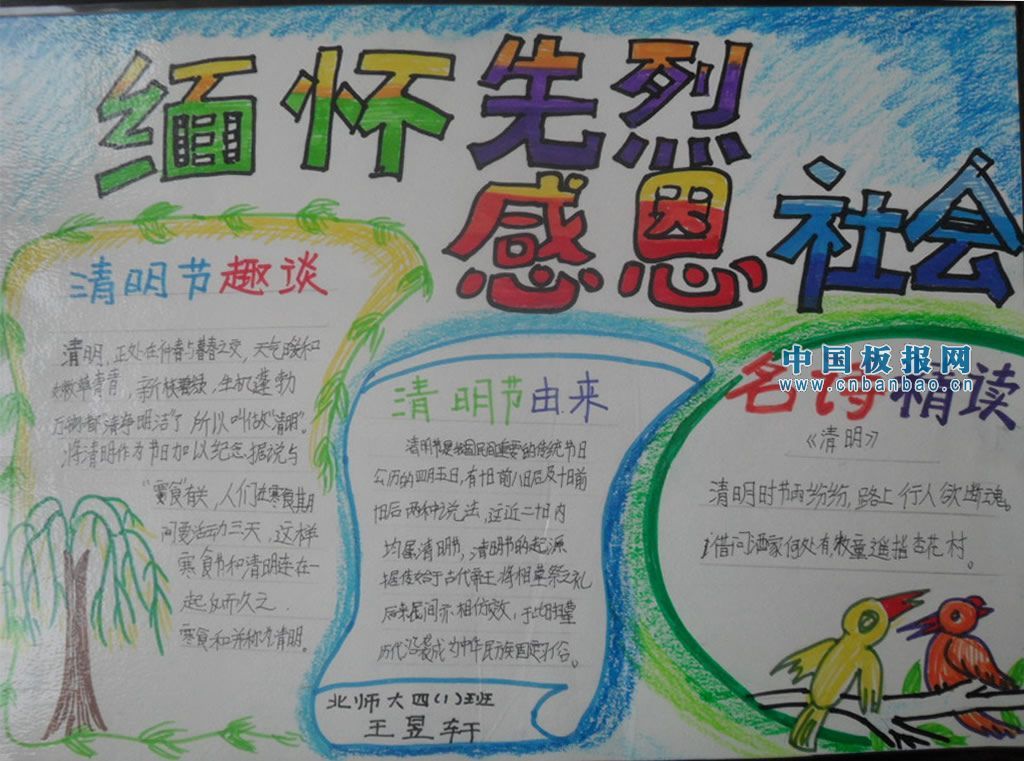 缅怀先烈
感恩社会
清明节趣谈
清明、正处在仲春与暮春之交，天气暖和
嫩草青青，新枝碧绿，生机蓬勃
万物都"清净明洁"了所以叫做"清明"。
将清明作为节日加以纪念据说与
"寒食"有关，人们在寒食其期
间要活动三天，这样
寒食节和清明连在一
起久而久之．
寒食和并称为清明。
清明节由来
清明节是我国民间重要的传统节日
公历的四月五日，有十日前八日后及十日前
十日后两种说法，这近二十日内
均属清明节，清明节的起源
据传始于古代帝王将相墓祭之礼
后来民间亦相仿效，于此日扫墓
历代沿袭成为中华民族固定
北师大四(1)班
王昱轩
中国板报网
www.cnbanbao.cn
名诗精读
《清明》
清明时节雨纷纷，路上行人欲断魂。
借问酒家何处有牧童遥指杏花村。